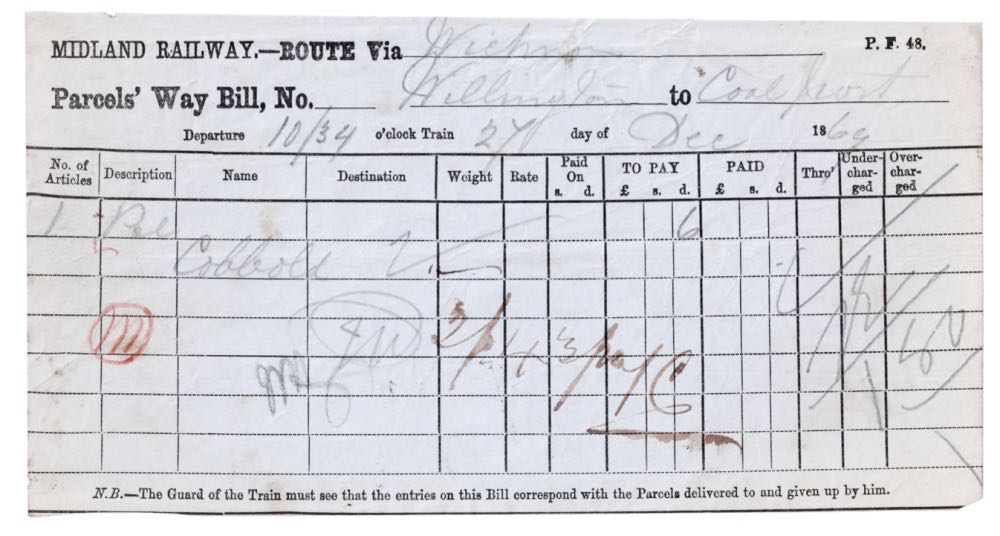 MIDLAND RAILWAY.—ROUTE Via Wichnor P. F. 48.
Parcels' Way Bill, No. Willington to Coalport
Departure 10/34 o'clock Train 27 day of Dec 1869
No. of Articles Description Name Destination Weight Rate Paid On s. d. TO PAY £ s. d. PAID £ s. d. Thro' Under-char-ged Over-char-ged
1 Pcl 6
Cobbold
N.B.—The Guard of the Train must see that the entries on this Bill correspond with the Parcels delivered to and given up by him.